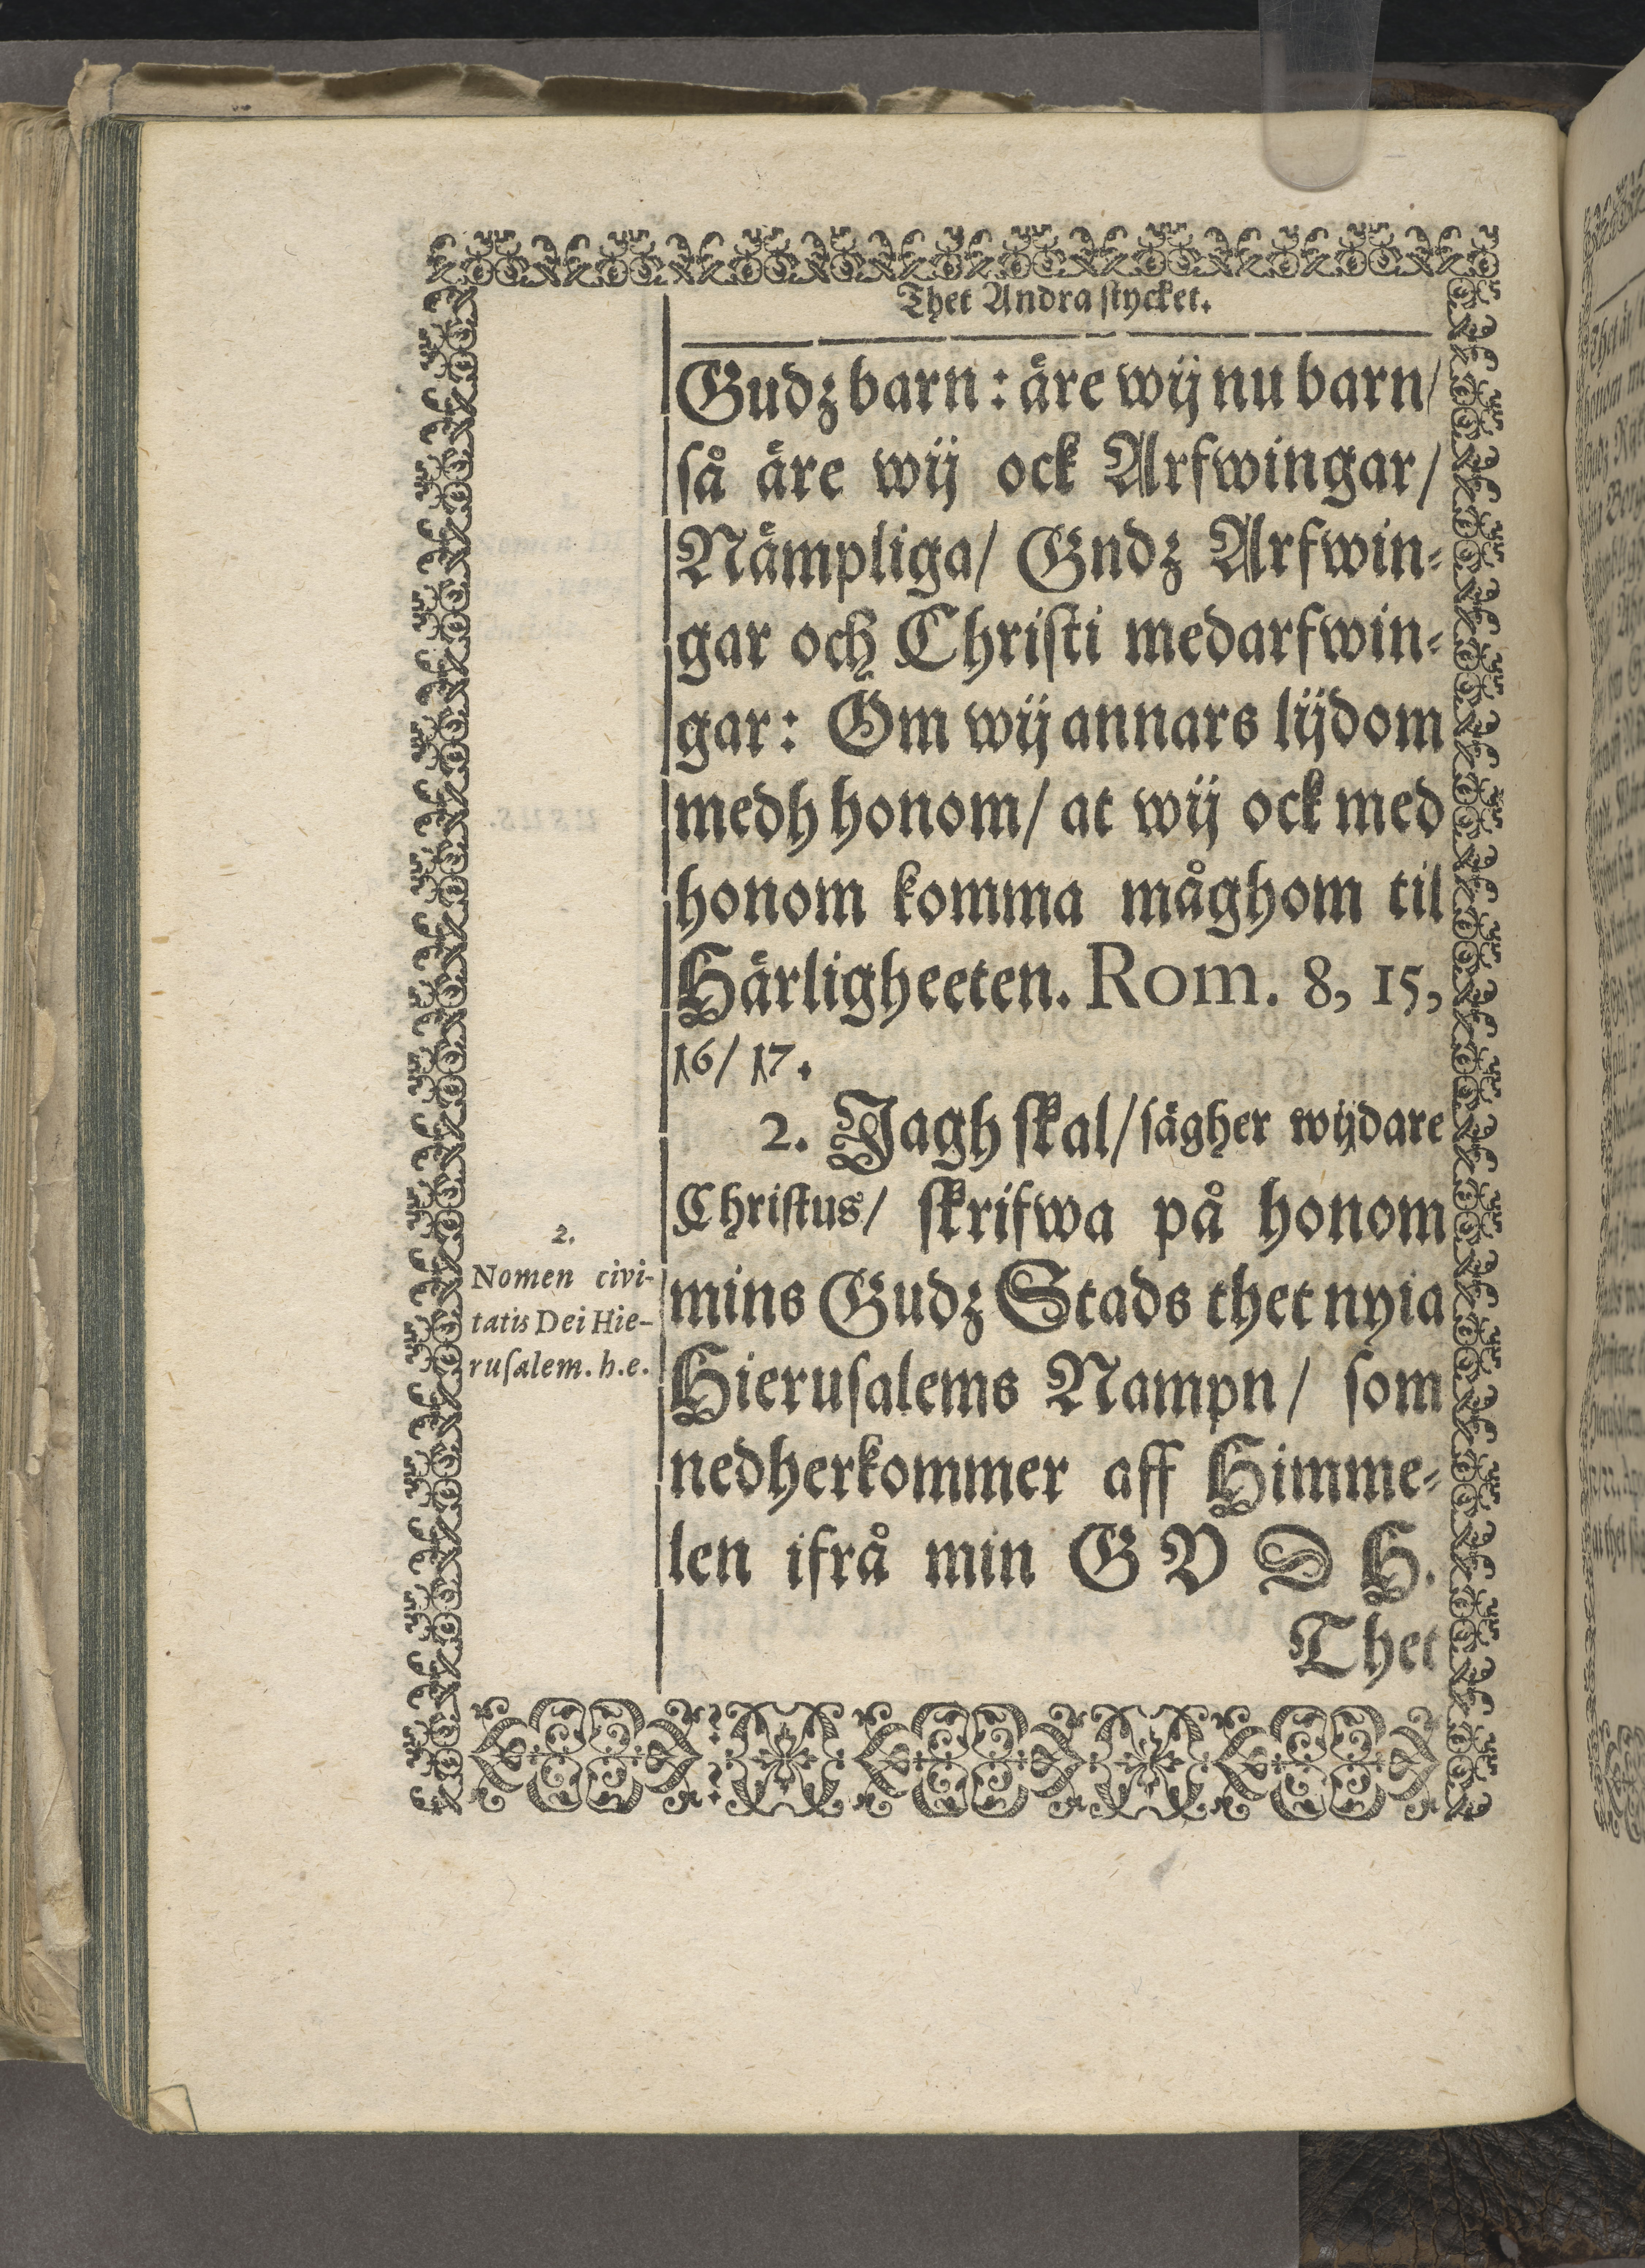 Thet Andra stycket.
Gudz barn: äre wij nu barn/
så äre wij ock Arfwingar/
Nämpliga/ Gndz Arfwin-
gar och Christi medarfwin-
gar: Om wij annars lijdom
medh honom/ at wij ock med
honom komma måghom til
Härligheeten. Rom. 8, 15,
16/ 17.
2. Jagh skal/ sägher wijdare
Christus/ skrifwa på honom
mins Gudz Stads thet nyia
Hierusalems Nampn/ som
nedherkommer aff Himme-
len ifrå min GVDH.
Thet
2.
Nomen civi-
tatis Dei Hie-
rusalem. h.e.